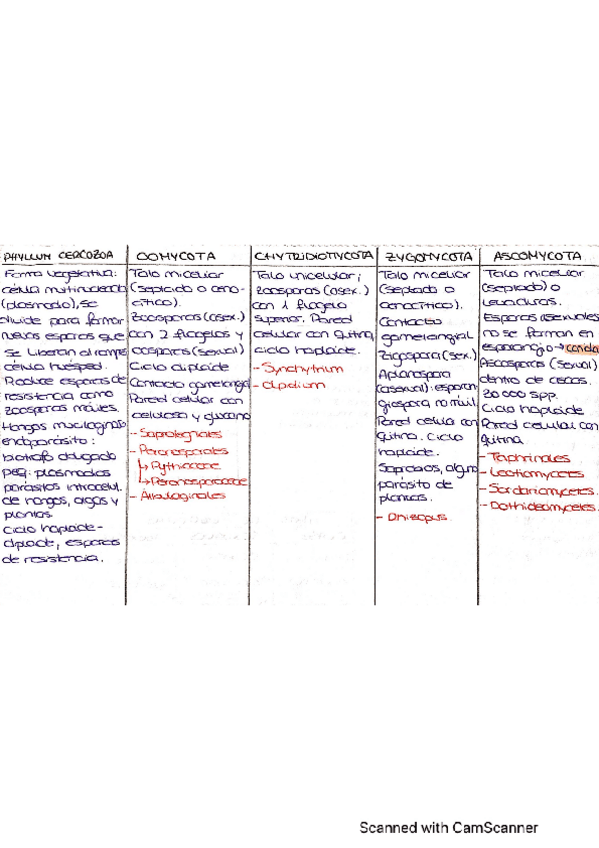 PHYLLUM CERCOZOA
Forma vegetativa:
célula multinucleada
(plasmodio), se
divide para formar
nuevas esporas que
se liberan al romper
célula huésped.
Produce esporas de
resistencia como
zoosporas móviles.
Hongos mucilaginoso
endoparásito:
biotrofo obligado
peq. plasmodios
parásitos intracelul.
de hongos, algas y
plantas.
Ciclo haploide-
diploide, esporas
de resistencia.
OOMYCOTA
Talo micelial
(septado o ceno-
cítico).
Zoosporas (asex.)
con 2 flagelos y
oosporas (sexual)
Ciclo diploide
Contacto gametangial
Pared celular con
celulosa y glucano
- Saprolegniales
- Peronosporales
↳ Pythiaceae
↳ Peronosporaceae
- Albuginales
CHYTRIDIOMYCOTA
Talo unicelular;
zoosporas (asex.)
con 1 flagelo
superior. Pared
celular con quitina,
ciclo haploide.
- Synchytrium
- Olpidium
ZYGOMYCOTA
Talo micelial
(septado o
cenocítico).
Contacto
gametangial
Zigospora (sex.)
Aplanospora
(asexual): esporan
giospora no móvil
Pared celula con
quitina. Ciclo
haploide.
Saprobios, algún
parásito de
plantas.
- Rhizopus
ASCOMYCOTA
Talo micelial
(septado) o
levaduras.
Esporas asexuales
no se forman en
esporangio → conidia
Ascosporas (sexual)
dentro de ascas.
30000 spp.
Ciclo haploide
Pared celular con
quitina
- Taphrinales
- Leotiomycetes
- Sordariomycetes
- Dothideomycetes.
Scanned with CamScanner